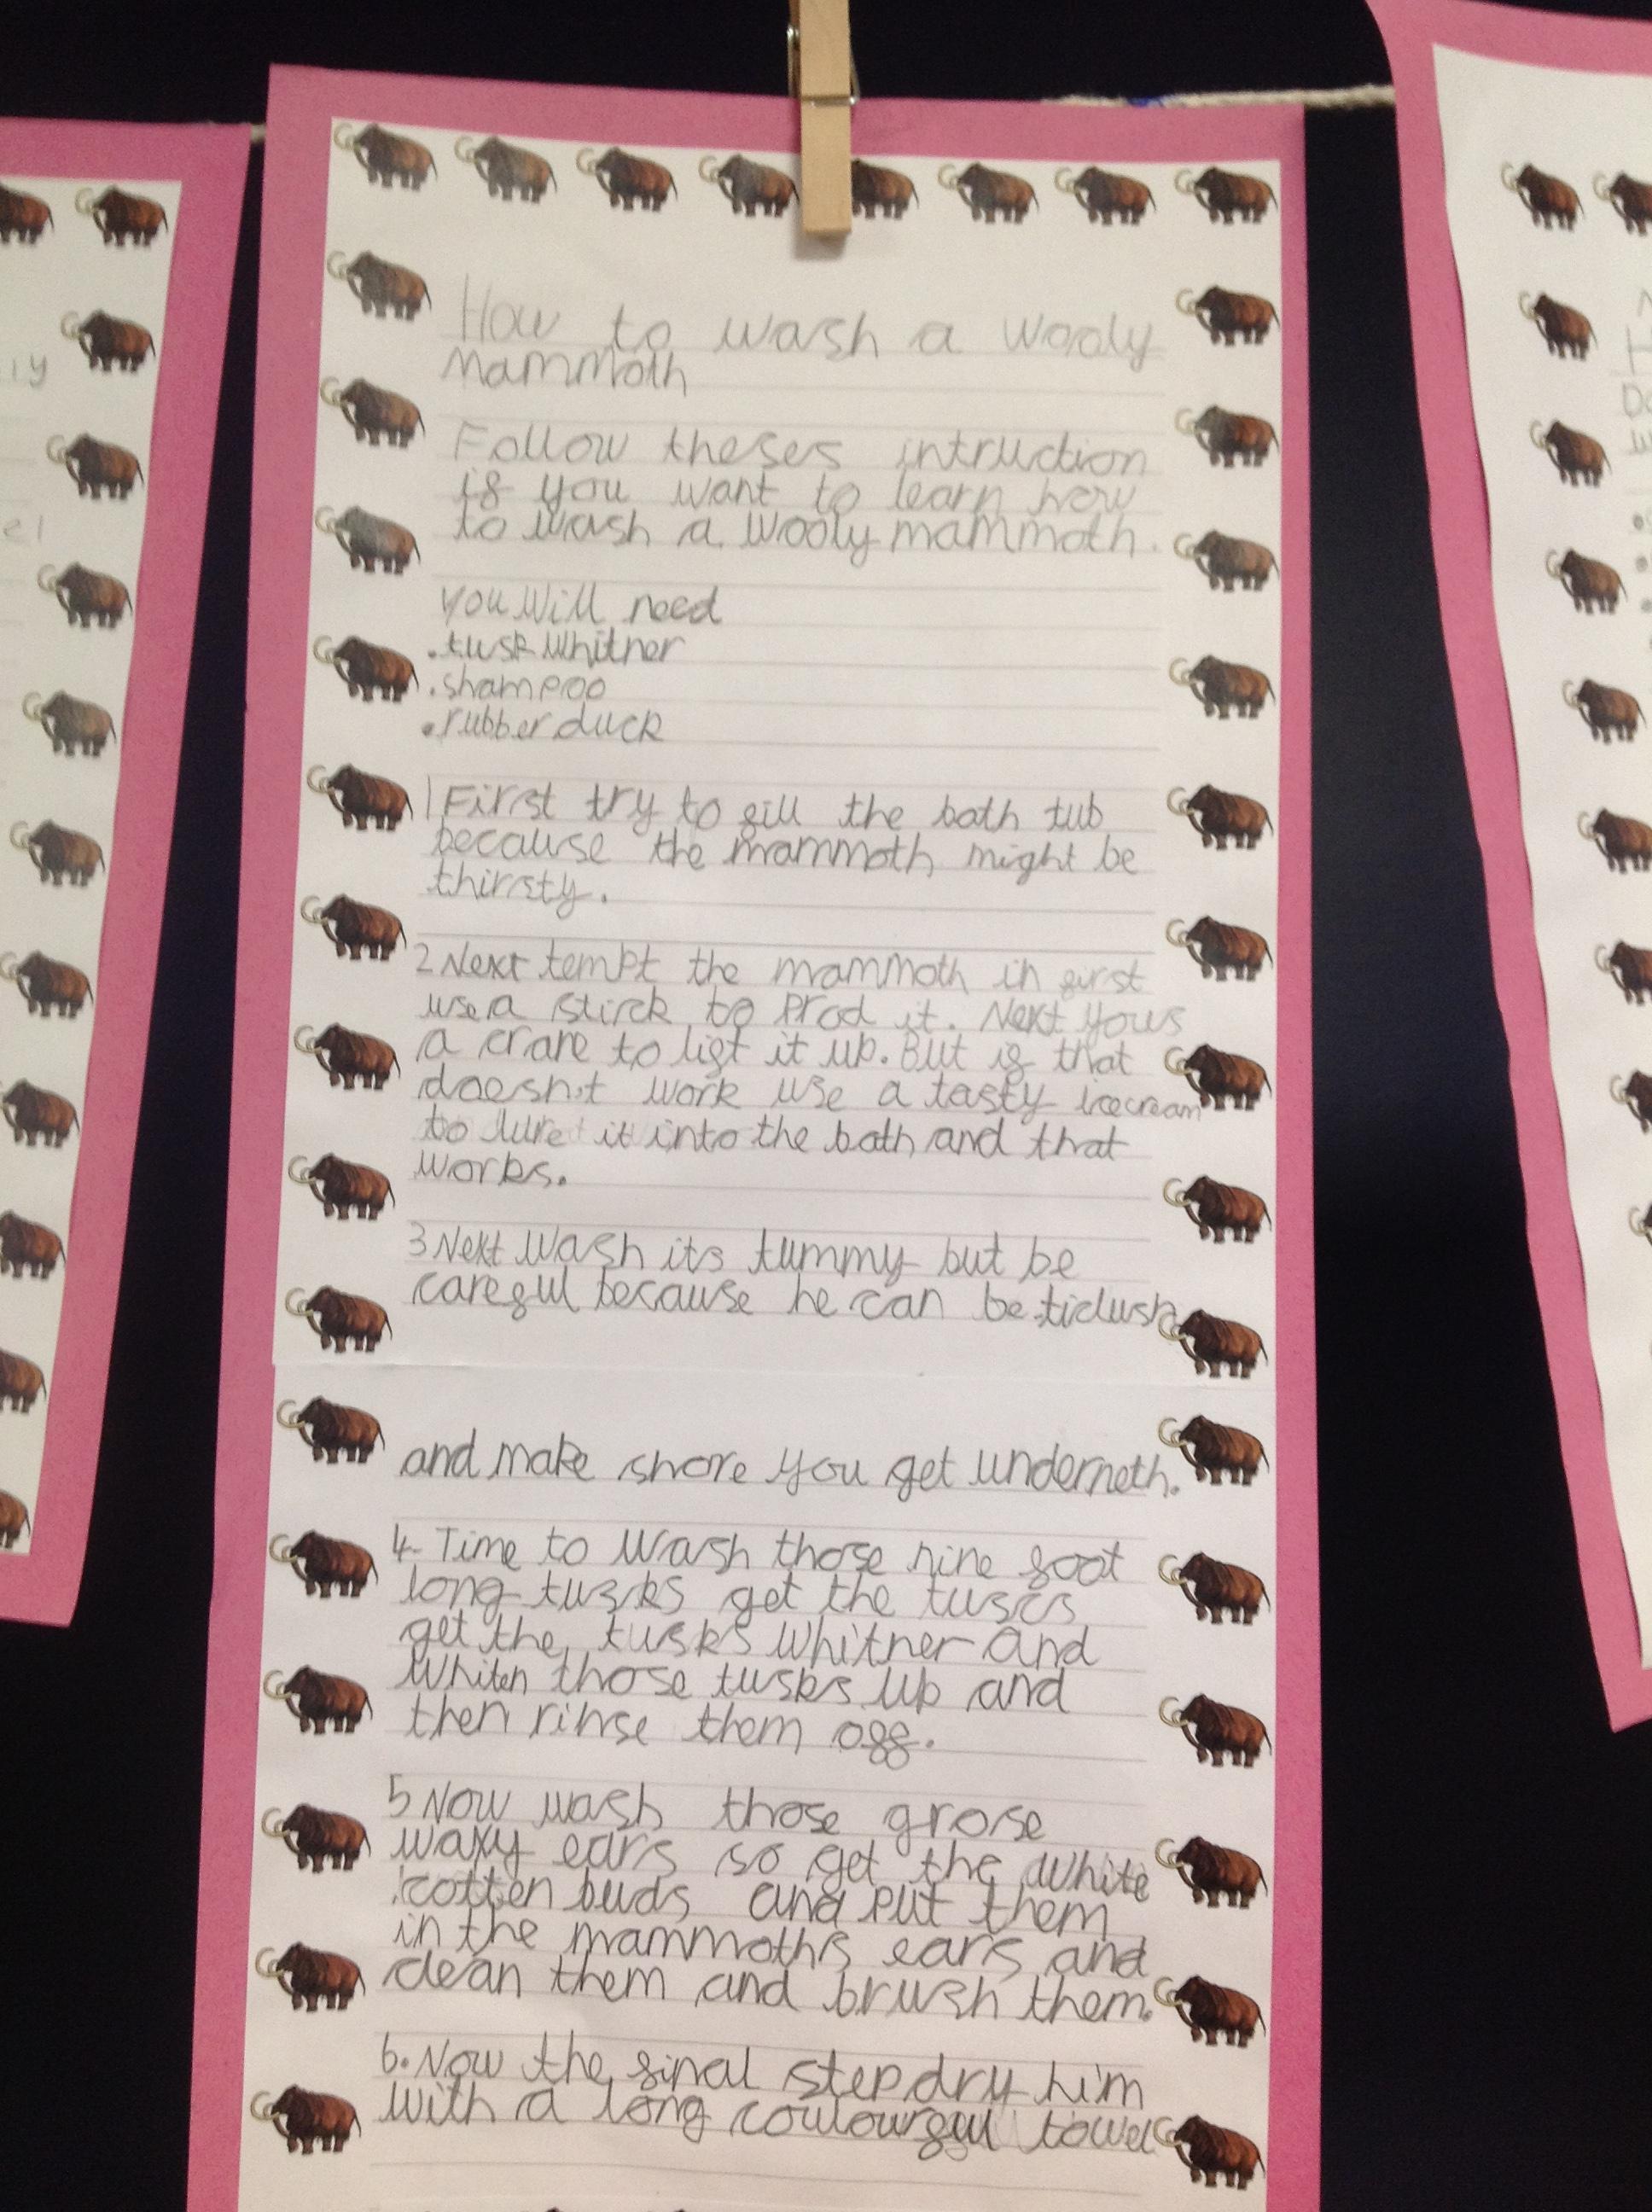 How to wash a wooly
mammoth
Follow theses intruction
if you want to learn how
to wash a wooly mammoth.
you will need
.tusk whitner
.shampoo
.rubber duck
1 First try to fill the bath tub
because the mammoth might be
thirsty.
2 Next tempt the mammoth in first
use a stick to prod it. Next yous
a crane to lift it up. But if that
doesn't work use a tasty icecream
to lure it into the bath and that
works.
3 Next wash its tummy but be
careful because he can be ticlush
and make shore you get underneth.
4. Time to wash those nine foot
long tusks get the tuscs
get the tusks whitner and
whiten those tusks up and
then rinse them off.
5 Now wash those grose
waxy ears so get the white
cotten buds and put them
in the mammoths ears and
clean them and brush them.
6. Now the final step dry him
with a long coulourful towel